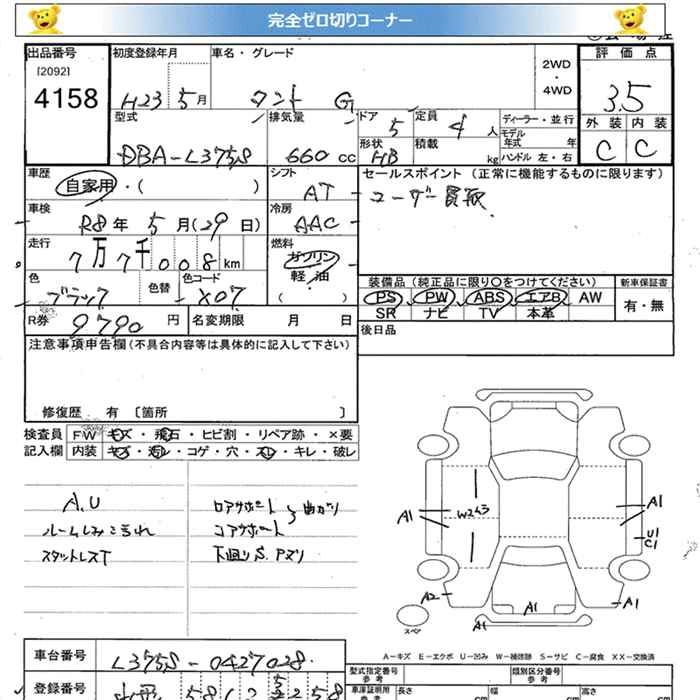 完全ゼロ切りコーナー
出品番号 初度登録年月 車名・グレード 2WD・4WD 評価点
[2092]
4158
H23 5月 タント G
3.5
外装 内装
C C
型式 排気量 ドア 5 定員 4人 ディーラー・並行
モデル年式 年
DBA-L375S 660cc
形状 HB 積載 kg ハンドル 左・右
車歴 シフト セールスポイント (正常に機能するものに限ります)
自家用・( ) AT
ユーザー買取
車検 冷房
R8年 5月(29日) AAC
走行 燃料
7万7千008km ガソリン
軽・油
( )
色 色替 色コード
ブラック X07
装備品 (純正品に限り〇をつけてください) 新車保証書
PS PW ABS エアB AW 有・無
SR ナビ TV 本革
R券 9790円 名変期限 月 日
後日品
注意事項申告欄(不具合内容等は具体的に記入して下さい)
修復歴 有 〔箇所 〕
検査員 FW キズ・飛石・ヒビ割・リペア跡・×要
記入欄 内装 キズ・汚レ・コゲ・穴・スレ・キレ・破レ
A.U
ルームしみこ汚れ
スタットレスT
ロアサポート 曲がり
コアサポート
下廻りS.アズリ
A1
W2.3
A1
U1
C1
A2
A1
A1
A1
スペア
A-キズ E-エクボ U-凹み W-補修跡 S-サビ C-腐食 XX-交換済
車台番号 L375S-0427028
型式指定番号 参考 類別区分番号 参考
登録番号
車庫証明用 参考 長さ cm 幅 cm 高さ cm